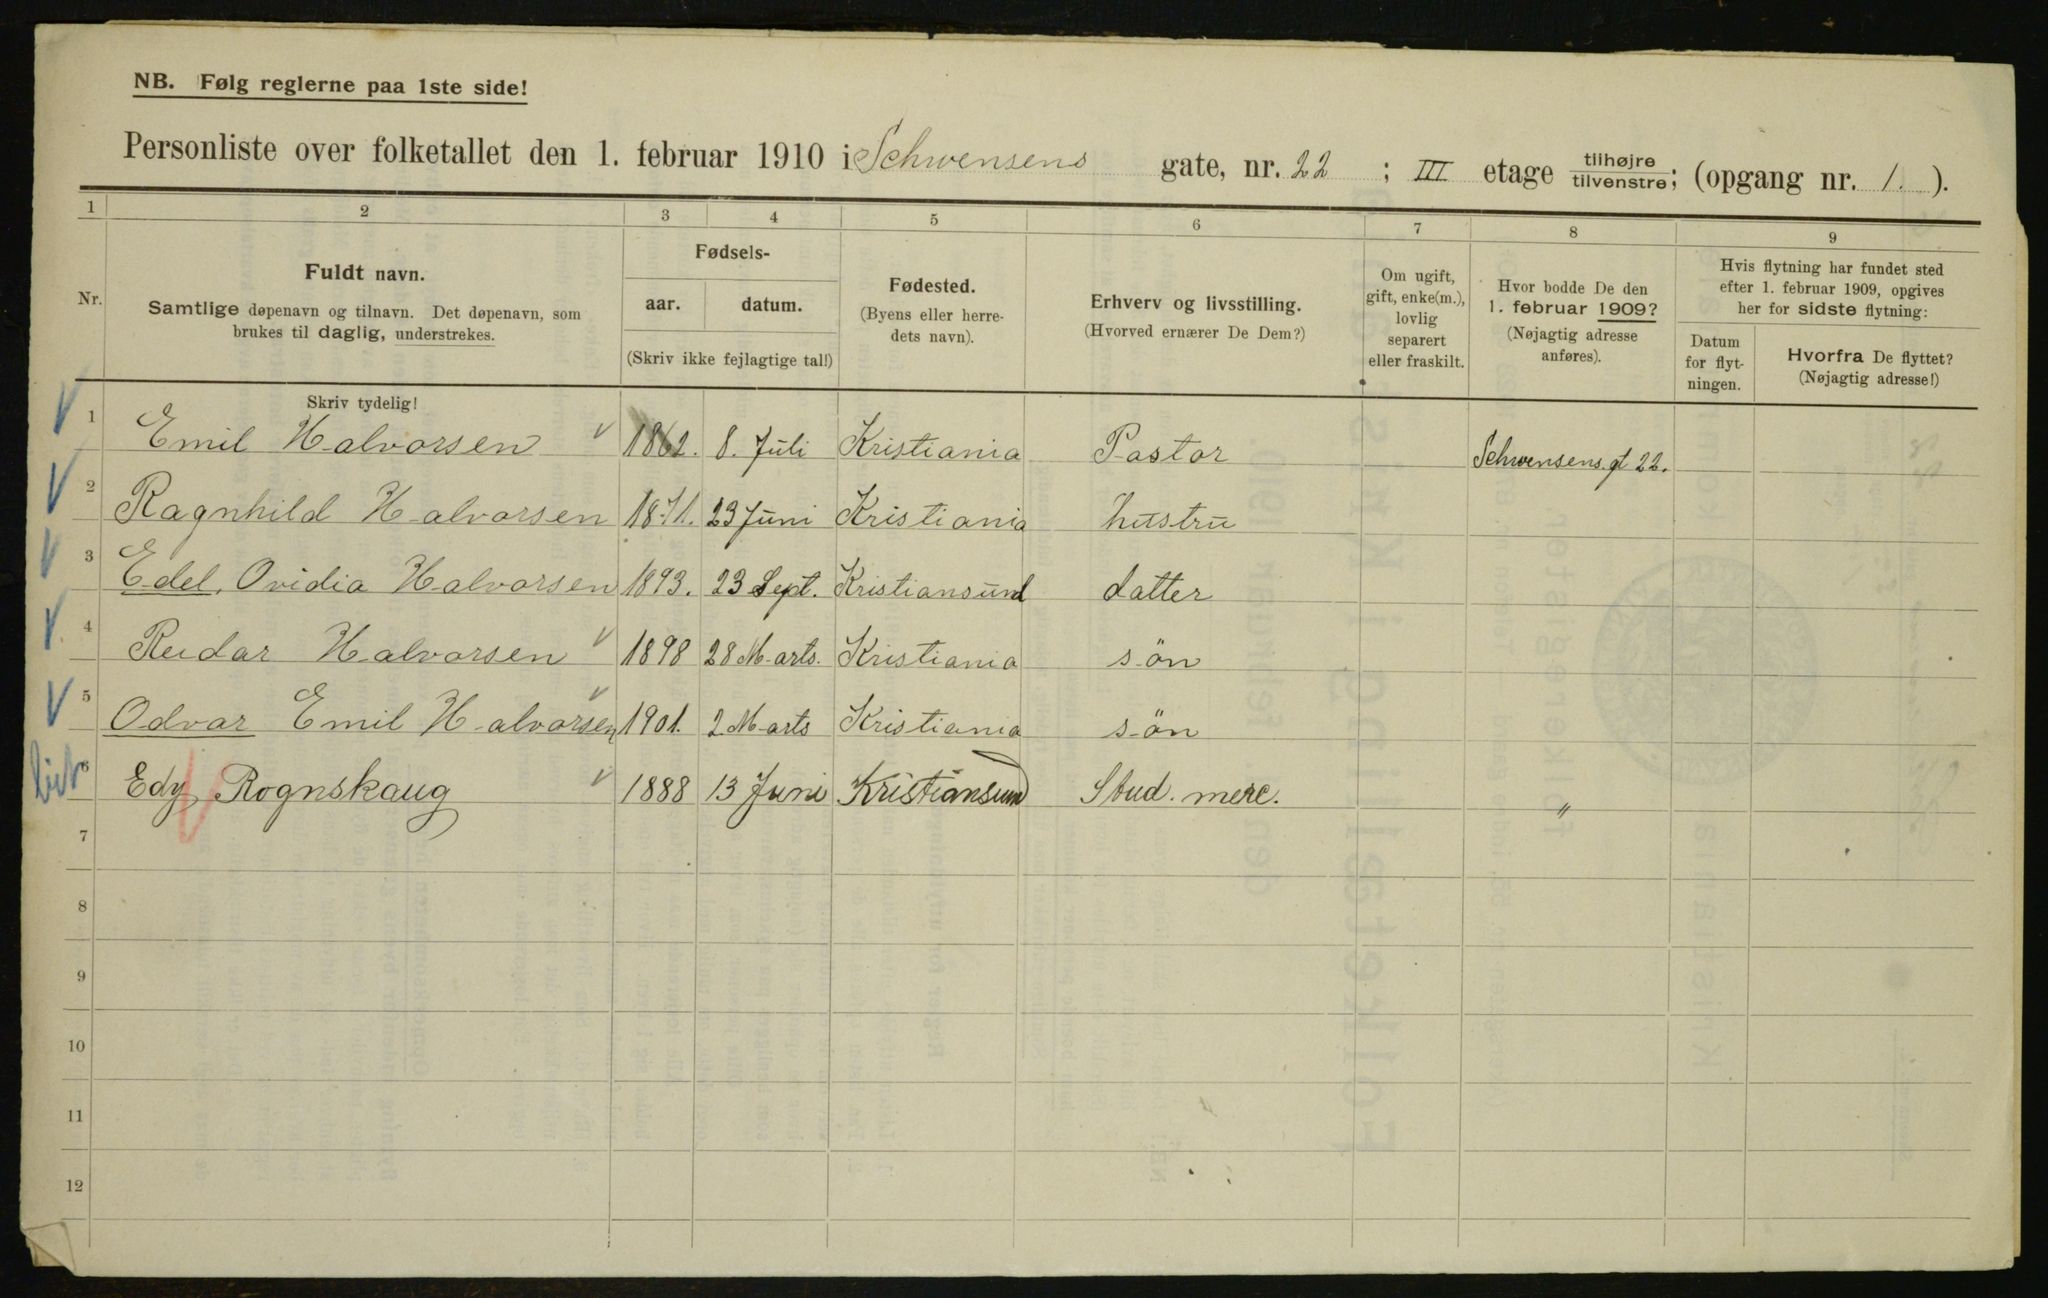 NB. Følg reglerne paa 1ste side!
Personliste over folketallet den 1. februar 1910 i Schwensens gate, nr. 22 ; III etage tilhøjre/tilvenstre; (opgang nr. 1. ).
1 2 3 4 5 6 7 8 9
Nr.
Fuldt navn.
Samtlige døpenavn og tilnavn. Det døpenavn, som
brukes til daglig, understrekes.
Skriv tydelig!
Fødsels-
aar. datum.
(Skriv ikke fejlagtige tal!)
Fødested.
(Byens eller herre-
dets navn).
Erhverv og livsstilling.
(Hvorved ernærer De Dem?)
Om ugift,
gift, enke(m.),
lovlig
separert
eller fraskilt.
Hvor bodde De den
1. februar 1909?
(Nøjagtig adresse
anføres).
Hvis flytning har fundet sted
efter 1. februar 1909, opgives
her for sidste flytning:
Datum
for flyt-
ningen.
Hvorfra De flyttet?
(Nøjagtig adresse!)
1 Emil Halvorsen 1862. 8. Juli Kristiania Pastor Schwensens. gt 22.
2 Ragnhild Halvorsen 1871. 23 Juni Kristiania hustru
3 Edel, Ovidia Halvorsen 1893. 23 Sept. Kristiansund datter
4 Reidar Halvorsen 1898 28 Marts. Kristiania sön
5 Odvar Emil Halvorsen 1901. 2 Marts Kristiania sön
6 Edy Rognskaug 1888 13 Juni Kristiansund Stud. merc. "
7
8
9
10
11
12